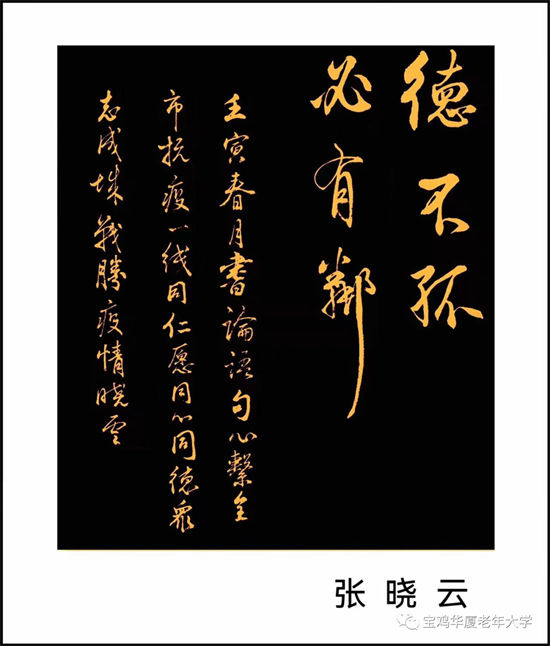 德不孤
必有鄰
壬寅春月書論語句心繫全
市抗疫一线同仁愿同心同德眾
志成城戰勝疫情晓雲
张晓云
宝鸡华厦老年大学